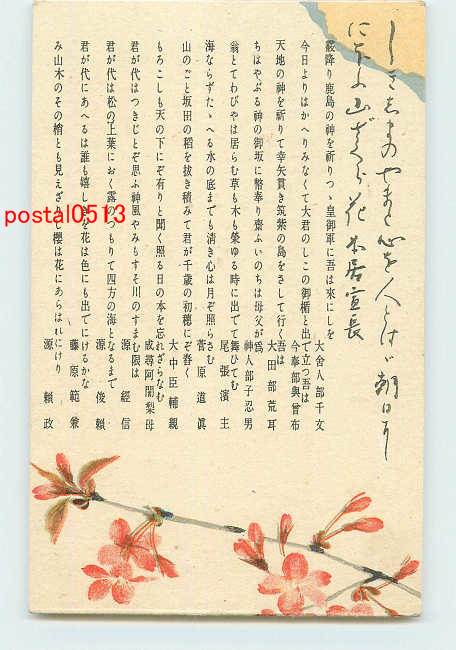 しきしまのやまと心を人とはゞ朝日に
にほふ山ざくら花 本居宣長
霰降り鹿島の神を祈りつゝ皇御軍に吾は来にしを 大舎人部千文
今日よりはかへりみなくて大君のしこの御楯と出で立つ吾は 今奉部與曾布
天地の神を祈りて幸矢貫き筑紫の島をさして行く吾は 大田部荒耳
ちはやぶる神の御坂に幣奉り齋ふいのちは母父が爲 神人部子忍男
翁とてわびやは居らむ草も木も榮ゆる時に出でて舞ひてむ 尾張濱主
海ならずたゝへる水の底までも淸き心は月ぞ照らさむ 菅原道眞
山のごと坂田の稻を抜き積みて君が千歳の初穗にぞ舂く 大中臣輔親
もろこしも天の下にぞ有りと聞く照る日の本を忘れざらなむ 成尋阿闍梨母
君が代はつきじとぞ思ふ神風やみもすそ川のすまむ限は 源經信
君が代は松の上葉におく露のつもりて四方の海となるまで 源俊賴
君が代にあへるは誰も嬉しきを花は色にも出でにけるかな 藤原範兼
み山木のその梢とも見えざりし櫻は花にあらはれにけり 源賴政
postal0513